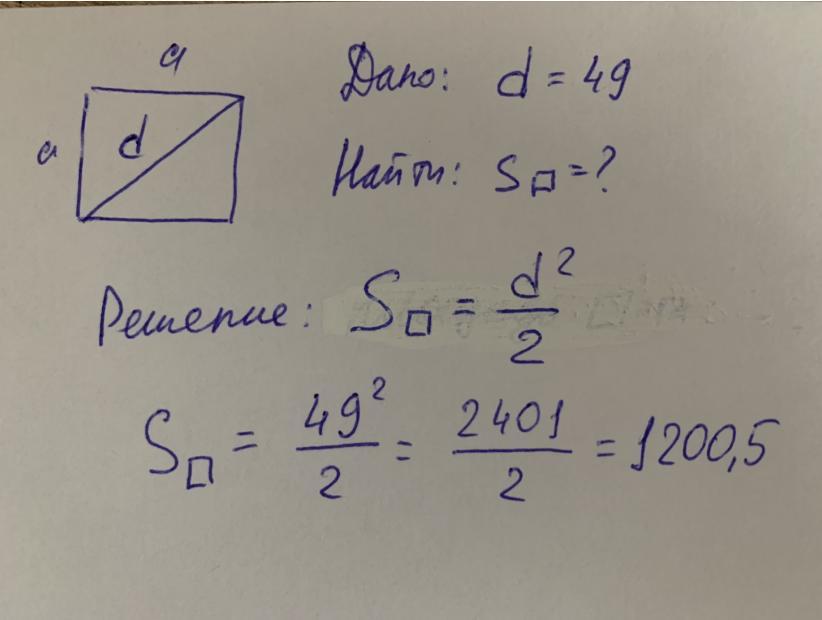 a
Дано: d = 49
a
d
Найти: S□ = ?
Решение: S□ = d²/2
S□ = 49²/2 = 2401/2 = 1200,5